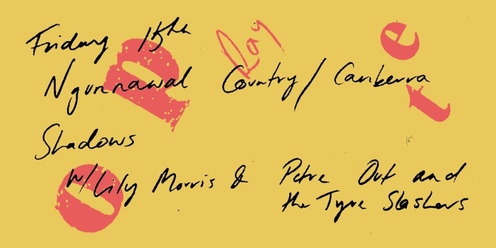 Friday 15th
Ray
Ngunnawal Country / Canberra
Shadows
w/ Lily Morris & Petre Out and
the Tyre Slashers